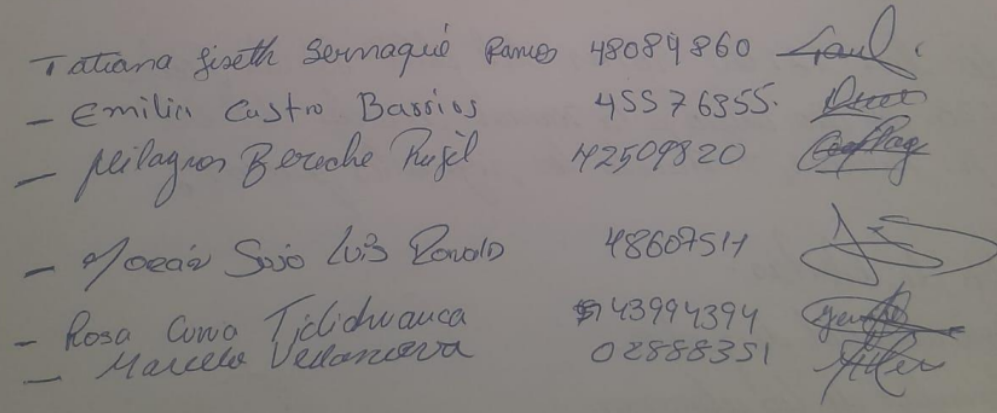 Tatiana Liseth Sernaqué Ramos 48084860
- Emilia Castro Barrios 45576355.
- Milagros Bereche Rufil 42509820
- Morán Sojo Luis Ronald 48607511
- Rosa Curia 43994394
- Marcelo Villanueva 02888351